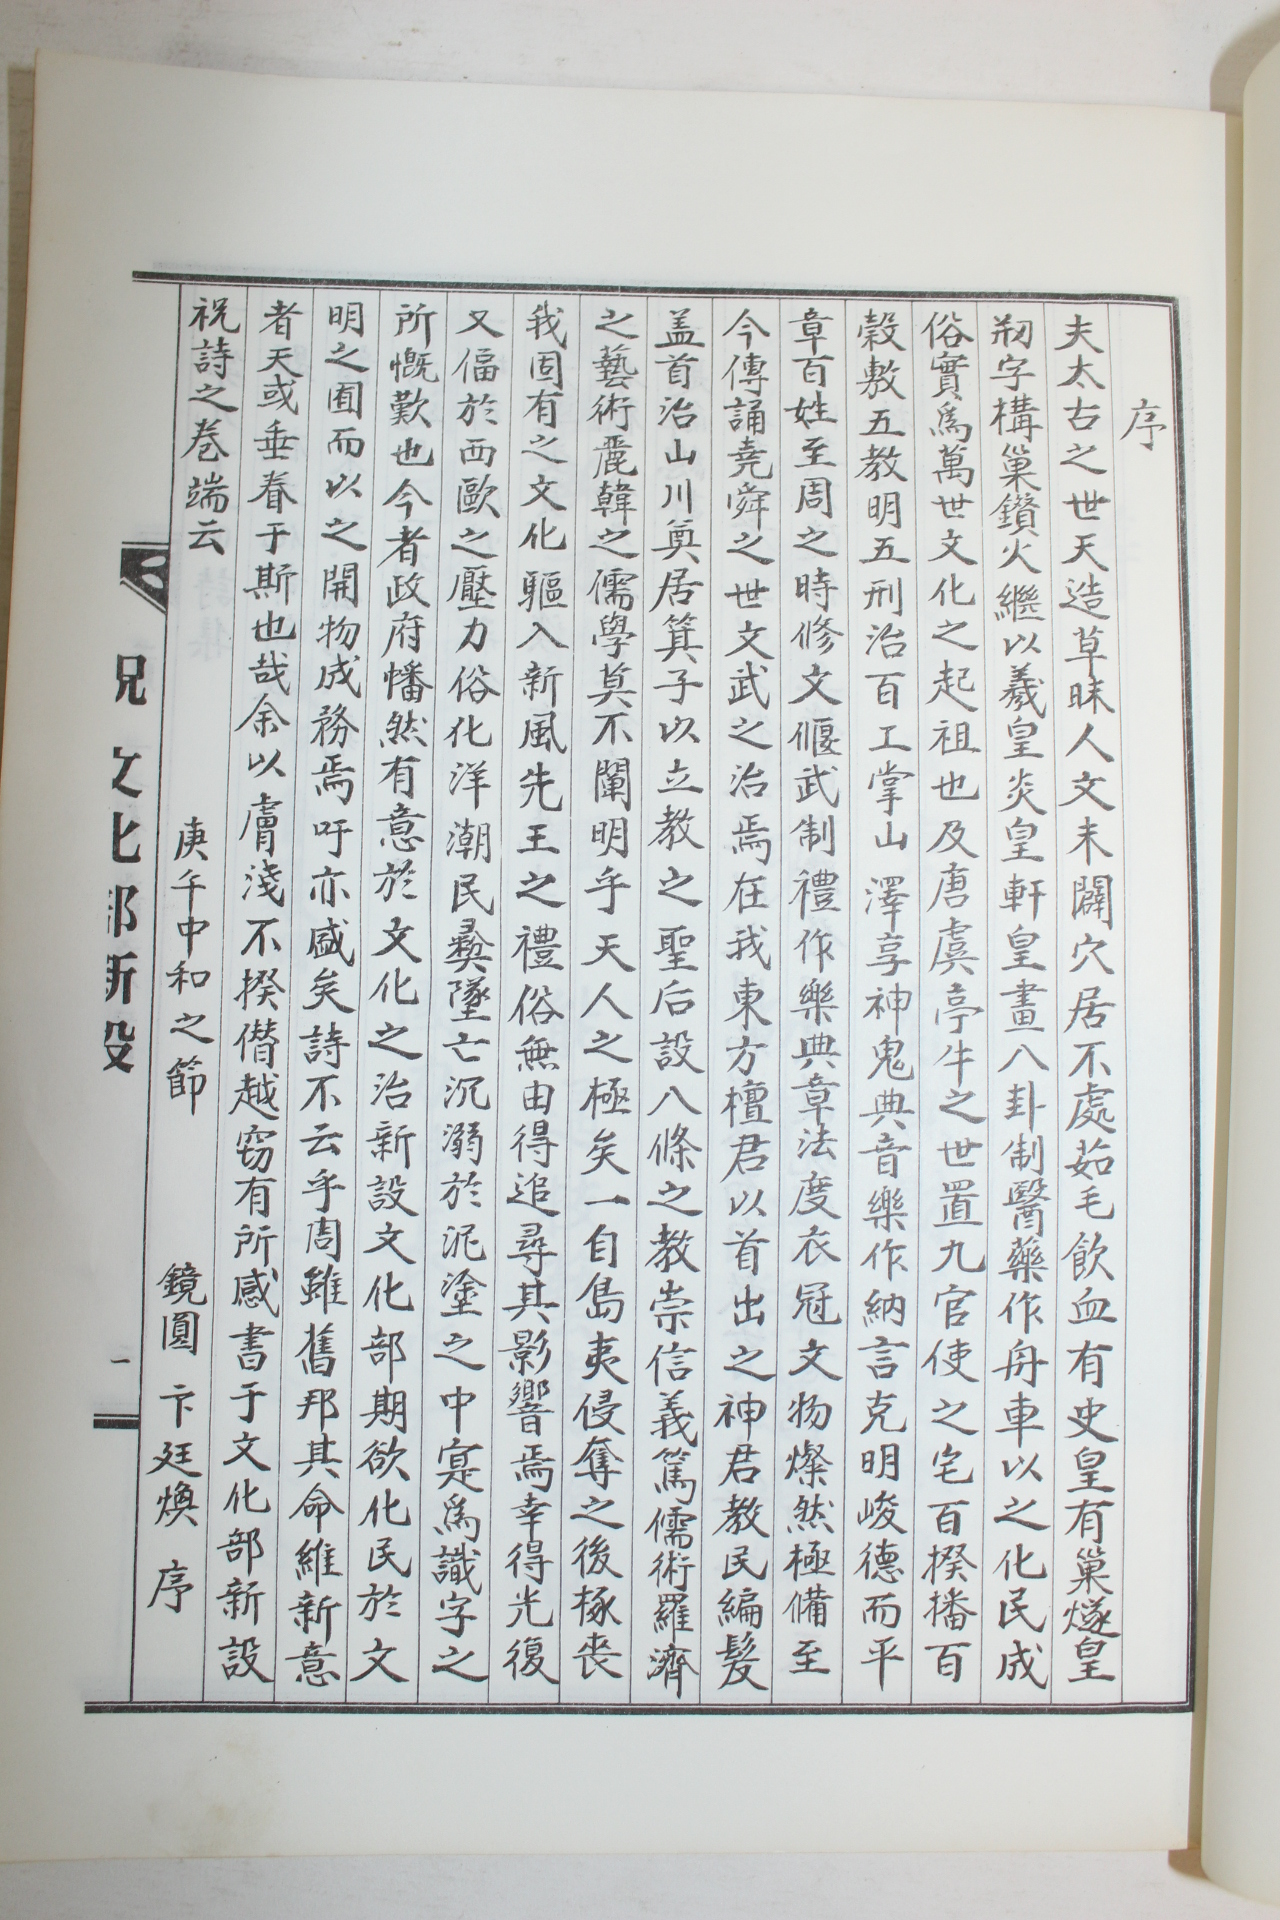 序
夫太古之世天造草昧人文未闢穴居不處茹毛飲血有史皇有巢燧皇
刱字構巢鑽火繼以羲皇炎皇軒皇畫八卦制醫藥作舟車以之化民成
俗實爲萬世文化之起祖也及唐虞亭牛之世置九官使之宅百揆播百
穀敷五教明五刑治百工掌山澤享神鬼典音樂作納言克明峻德而平
章百姓至周之時修文偃武制禮作樂典章法度衣冠文物燦然極備至
今傳誦堯舜之世文武之治焉在我東方檀君以首出之神君教民編髮
盖首治山川奠居箕子以立教之聖后設八條之教崇信義篤儒術羅濟
之藝術麗韓之儒學莫不闡明乎天人之極矣一自島夷侵奪之後椓喪
我固有之文化驅入新風先王之禮俗無由得追尋其影響焉幸得光復
又偪於西歐之壓力俗化洋潮民彜墜亡沉溺於泥塗之中寔爲識字之
所慨歎也今者政府幡然有意於文化之治新設文化部期欲化民於文
明之囿而以之開物成務焉吁亦盛矣詩不云乎周雖舊邦其命維新意
者天或垂眷于斯也哉余以膚淺不揆僭越窃有所感書于文化部新設
祝詩之卷端云
庚午中和之節 鏡圓 卞廷煥 序
祝文化部新設
一